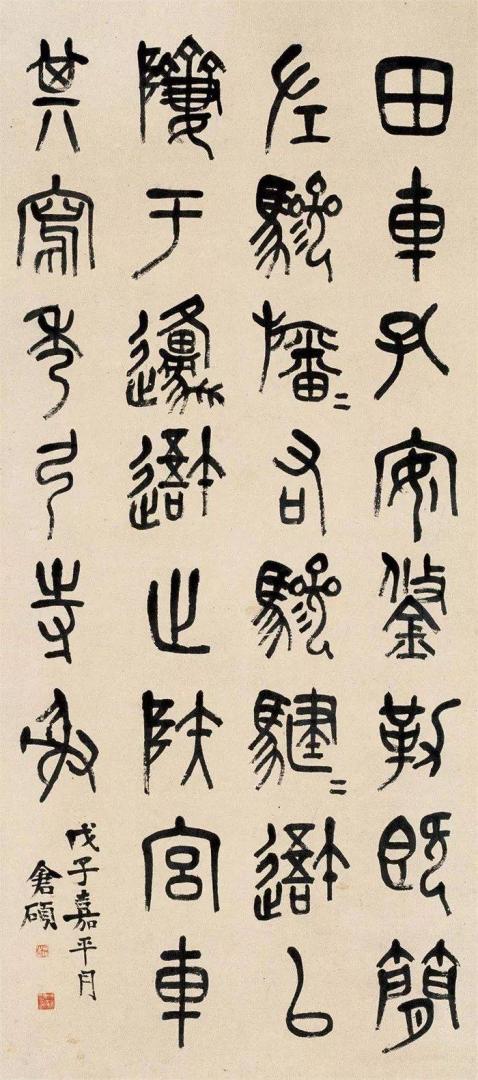 田車孔安鋚勒既簡
左驂旛=右驂騝=䢩以
隮于邍䢩止陝宮車
其寫秀弓寺射
戊子嘉平月
倉碩